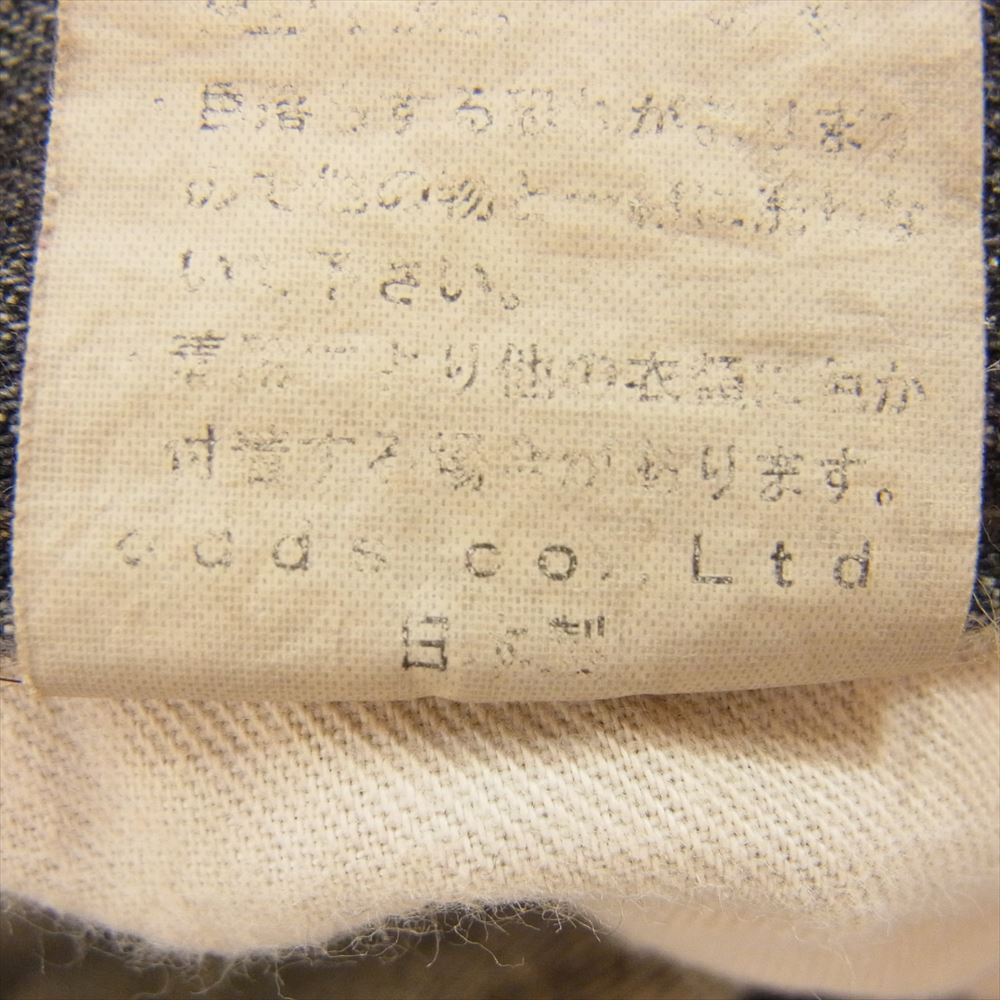 ・色落ちする恐れがあります
ので他の物と一緒に洗わな
いで下さい。
・着用により他の衣類に色が
付着する場合があります。
odds co., Ltd
日本製